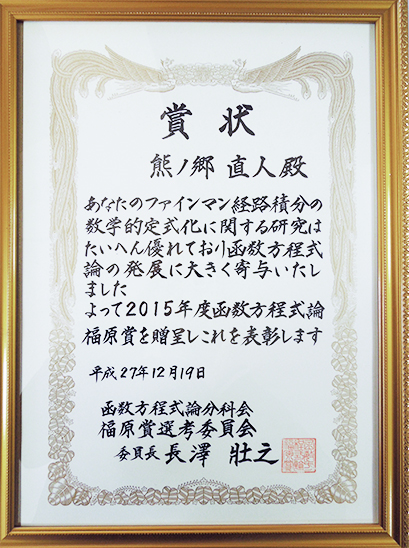 賞状
熊ノ郷 直人殿
あなたのファインマン経路積分の
数学的定式化に関する研究は
たいへん優れており函数方程式
論の発展に大きく寄与いたし
ました
よって2015年度函数方程式論
福原賞を贈呈しこれを表彰します
平成27年12月19日
函数方程式論分科会
福原賞選考委員会
委員長 長澤 壯之